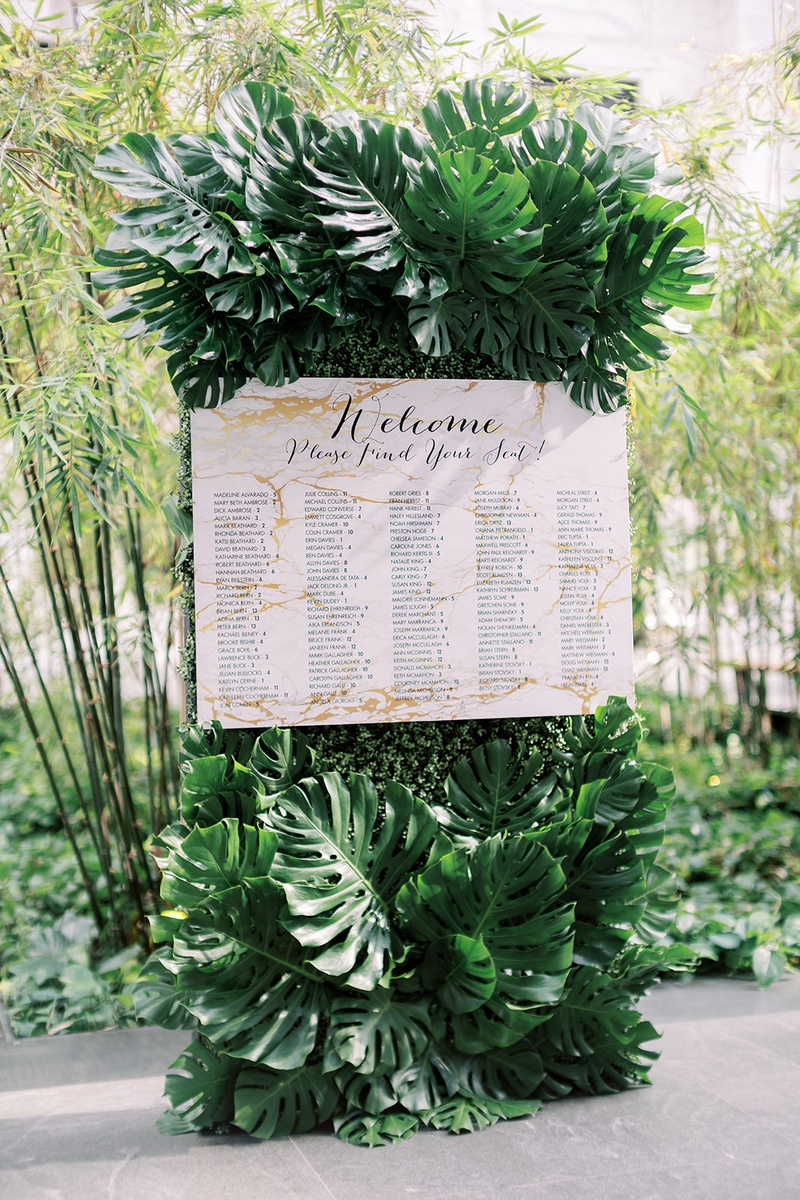 Welcome
Please Find Your Seat!
MADELINE ALVARADO - 5
MARY BETH AMBROSE - 2
DICK AMBROSE - 2
ALICIA BARAN - 3
MARK BEATHARD - 2
RHONDA BEATHARD - 2
KATSI BEATHARD - 2
DAVID BEATHARD - 2
KATHARINE BEATHARD - 2
ROBERT BEATHARD - 6
HANNAH BEATHARD - 6
RYAN BEILSTEIN - 4
MARCY BERN - 2
RICHARD BERN - 2
MONICA BERN - 4
BRIAN BERN - 13
ADINA BERN - 13
PETER BERN - 13
RACHAEL BILNEY - 4
BROOKE BISHIR - 4
GRACE BOHL - 6
LAWRENCE BUCK - 3
JANE BUCK - 3
JILLIAN BULLOCKS - 4
KAITLYN CERNE - 1
KEVIN COCHERHAM - 11
KATHLEEN COCHERHAM - 11
JON COHEN - 5
JULIE COLLINS - 11
MICHAEL COLLINS - 11
EDWARD CONVERSE - 7
EMMETT COSGROVE - 4
KYLE CRAMER - 10
COLIN CRAMER - 10
ERIN DAVIES - 1
MEGAN DAVIES - 4
BEN DAVIES - 4
ALLYN DAVIES - 8
JOHN DAVIES - 8
ALESSANDRA DE TATA - 4
JACK DELONG JR - 1
MARK DUBE - 4
KEVIN DUDEY - 1
RICHARD EHRENREICH - 9
SUSAN EHRENREICH - 9
AIKA ERLANDSON - 5
MELANIE FRANK - 4
BRUCE FRANK - 12
JANEEN FRANK - 12
MARK GALLAGHER - 10
HEATHER GALLAGHER - 10
PATRICK GALLAGHER - 10
CAROLYN GALLAGHER - 10
RICHARD GALLI - 10
ANN GALLI - 10
ANGELA GIORGIO - 5
ROBERT GRIES - 8
FRAN HERBST - 11
HANK HERBST - 11
HALEY HILLESLAND - 7
NOAH HIRSHMAN - 7
PRESTON HOGE - 7
CHELSEA JAMESON - 4
CAROLINE JONES - 6
RICHARD KERTIS III - 5
NATALIE KING - 4
JOHN KING - 7
CARLY KING - 7
SUSAN KING - 12
JAMES KING - 12
MARJORIE LONNEMANN - 5
JAMES LOUGH - 5
DEREK MARCHANT - 5
MARY MARRANCA - 9
JOSEPH MARRANCA - 9
ERICA MCCULLAGH - 6
JOSEPH MCCULLAGH - 6
ANN MCGINNIS - 12
KEITH MCGINNIS - 12
DONALD MCMAHON - 3
BETH MCMAHON - 3
COURTNEY MCMAHON - 10
MELINDA MICHELSON - 8
JEFFREY MICHELSON - 8
MORGAN MILLS - 7
JANE MULDOON - 9
JOSEPH MURRAY - 6
CHRISTOPHER NEWMAN - 4
ERICA ORTIZ - 13
ORIANA PETRANGELO - 1
MATTHEW PORATH - 1
MAXWELL PRESCOTT - 6
JOHN PAUL REICHERT - 9
MARTI REICHERT - 9
JEFFREY ROBERTS - 3
SCOTT RUMIZEN - 13
ELIZABETH RUMIZEN - 13
KATHRYN SCHREIBMAN - 13
JAMES SCIME - 9
GRETCHEN SCIME - 9
BRIAN SHARINSKY - 5
ADAM SHEMORY - 5
NOLAN SHENINGER - 5
CHRISTOPHER STALLANO - 11
ANNETTE STALLANO - 11
BRIAN STERN - 8
SUSAN STERN - 8
KATHERINE STOVSKY - 1
BRIAN STOVSKY - 1
RICHARD STOVSKY - 8
BETSY STOVSKY - 8
MICHEAL STREIT - 4
LUCY TAFT - 7
GERALD THOMAS - 9
ALICE THOMAS - 9
ANN MARIE THOMAS - 9
ERIC TUPTA - 1
LAURA TUPTA - 1
ANTHONY VISCOGLIOSI - 12
MOLLY VOLK - 4
CHRISTIAN VOLK - 4
MITCHEL WEISMAN - 2
MARY WEISMAN - 2
MARK WEISMAN - 3
MATTHEW WEISMAN - 6
DOUG WEISMAN - 13
CHAD WEISMAN - 13